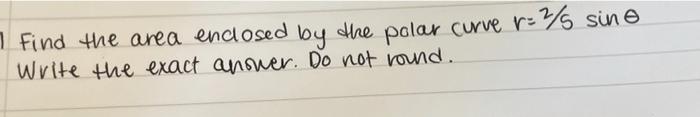 1 Find the area enclosed by the polar curve r=2/5 sinθ
Write the exact answer. Do not round.